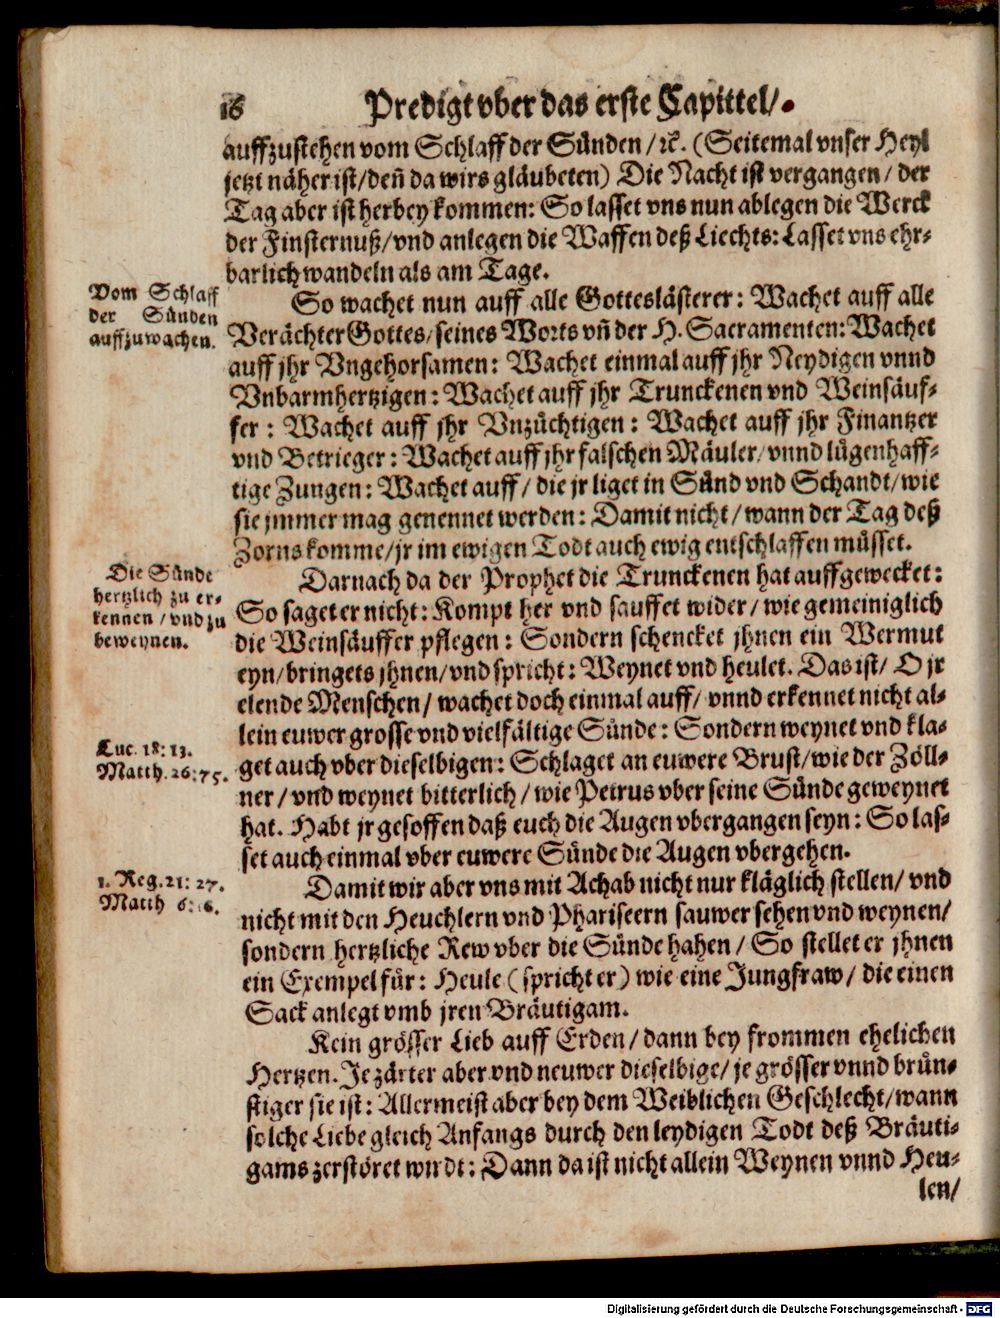 16 Predigt vber das erste Capittel/
auffzustehen vom Schlaff der Sünden / ꝛc. (Seitemal vnser Heyl
jetzt näher ist/deñ da wirs gläubeten) Die Nacht ist vergangen / der
Tag aber ist herbey kommen: So lasset vns nun ablegen die Werck
der Finsternuß/vnd anlegen die Waffen deß Liechts: Lasset vns ehr-
barlich wandeln als am Tage.
Vom Schlaff
der Sünden
auffzuwachen.
So wachet nun auff alle Gotteslästerer: Wachet auff alle
Verächter Gottes/seines Worts vñ der H. Sacramenten: Wachet
auff jhr Vngehorsamen: Wachet einmal auff jhr Neydigen vnnd
Vnbarmhertzigen: Wachet auff jhr Trunckenen vnd Weinsäuf-
fer: Wachet auff jhr Vnzüchtigen: Wachet auff jhr Finantzer
vnd Betrieger: Wachet auff jhr falschen Mäuler/vnnd lügenhaff-
tige Zungen: Wachet auff/ die jr liget in Sünd vnd Schandt/wie
sie jmmer mag genennet werden: Damit nicht/wann der Tag deß
Zorns komme/jr im ewigen Todt auch ewig entschlaffen müsset.
Die Sünde
hertzlich zu er-
kennen / vnd zu
beweynen.
Darnach da der Prophet die Trunckenen hat auffgewecket:
So saget er nicht: Kompt her vnd sauffet wider/wie gemeiniglich
die Weinsäuffer pflegen: Sondern schencket jhnen ein Wermut
eyn/bringets jhnen/vnd spricht: Weynet vnd heulet. Das ist/ O jr
elende Menschen/ wachet doch einmal auff/ vnnd erkennet nicht al-
lein euwer grosse vnd vielfältige Sünde: Sondern weynet vnd kla-
Luc. 18: 13.
Matth. 26: 75.
get auch vber dieselbigen: Schlaget an euwere Brust/wie der Zöll-
ner / vnd weynet bitterlich/wie Petrus vber seine Sünde geweynet
hat. Habt jr gesoffen daß euch die Augen vbergangen seyn: So las-
set auch einmal vber euwere Sünde die Augen vbergehen.
1. Reg. 21: 27.
Matth 6: 16.
Damit wir aber vns mit Achab nicht nur kläglich stellen/ vnd
nicht mit den Heuchlern vnd Phariseern sauwer sehen vnd weynen/
sondern hertzliche Rew vber die Sünde hahen/ So stellet er jhnen
ein Exempel für: Heule (spricht er) wie eine Jungfraw/ die einen
Sack anlegt vmb jren Bräutigam.
Kein grösser Lieb auff Erden/ dann bey frommen ehelichen
Hertzen. Je zärter aber vnd neuwer dieselbige/ je grösser vnnd brün-
stiger sie ist: Allermeist aber bey dem Weiblichen Geschlecht/wann
solche Liebe gleich Anfangs durch den leydigen Todt deß Bräuti-
gams zerstöret wirdt: Dann da ist nicht allein Weynen vnnd Heu-
len/
Digitalisierung gefördert durch die Deutsche Forschungsgemeinschaft - DFG